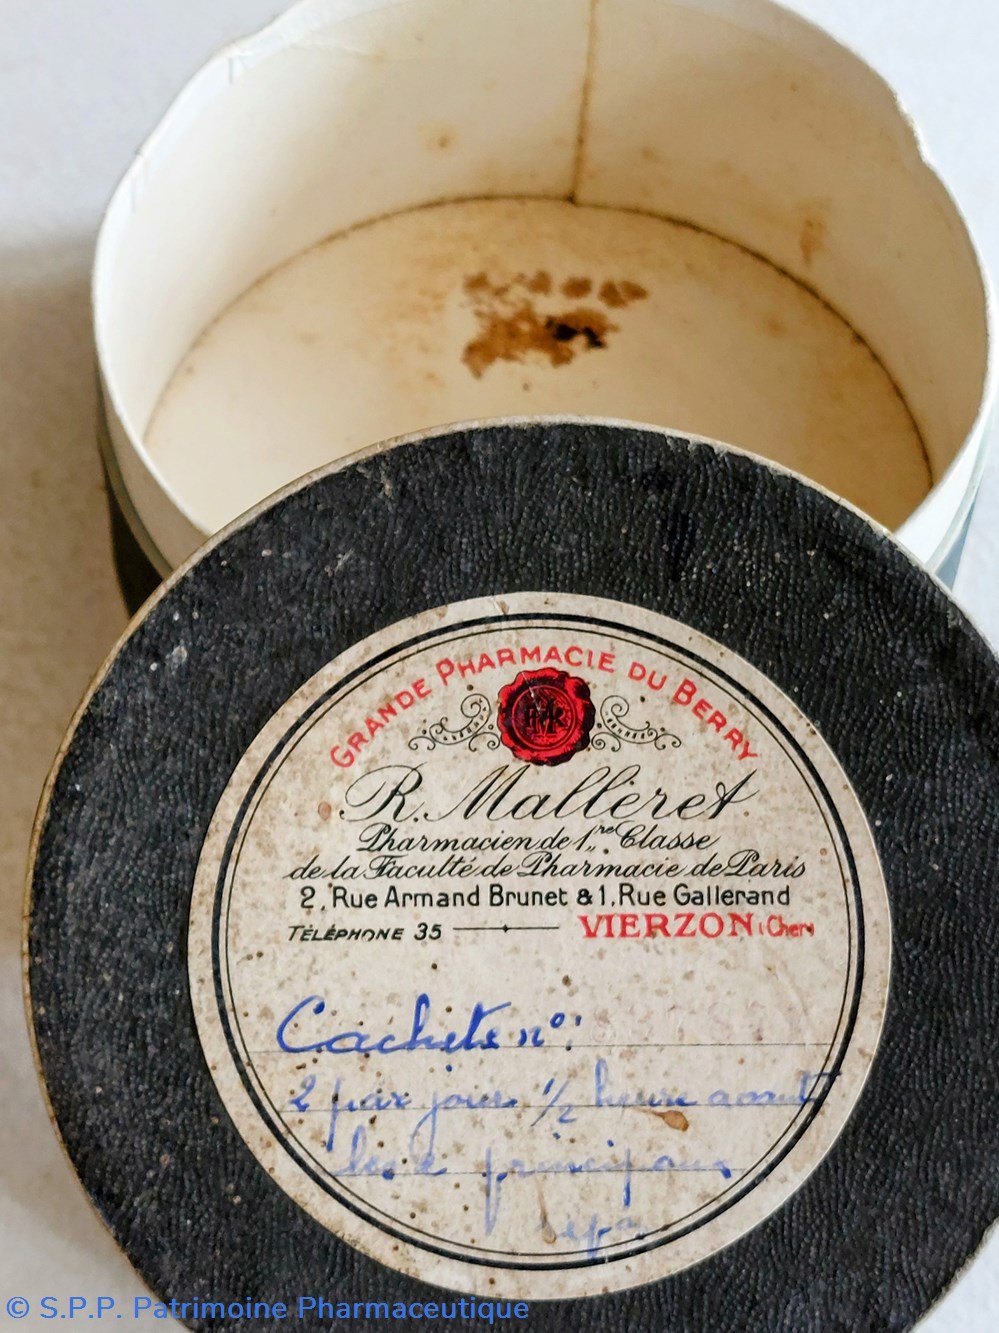 GRANDE PHARMACIE DU BERRY
R. Malleret
Pharmacien de 1re Classe
de la Faculté de Pharmacie de Paris
2, Rue Armand Brunet & 1, Rue Gallerand
TÉLÉPHONE 35 VIERZON (Cher)
Cachets no:
2 par jour 1/2 heure avant
les 2 principaux
© S.P.P. Patrimoine Pharmaceutique